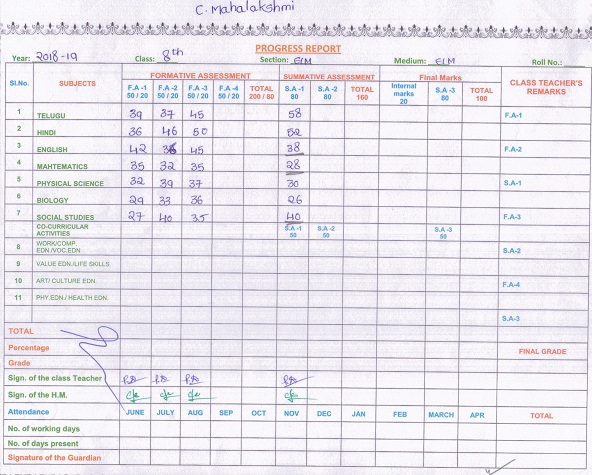 C. Mahalakshmi
PROGRESS REPORT
Year: 2018-19 Class: 8th Section: E/M Medium: E/M Roll No.:
Sl.No. SUBJECTS FORMATIVE ASSESSMENT SUMMATIVE ASSESSMENT Final Marks CLASS TEACHER'S REMARKS
F.A -1 50 / 20 F.A -2 50 / 20 F.A -3 50 / 20 F.A -4 50 / 20 TOTAL 200 / 80 S.A -1 80 S.A -2 80 TOTAL 160 Internal marks 20 S.A -3 80 TOTAL 100
1 TELUGU 39 37 45 58 F.A-1
2 HINDI 36 46 50 52
3 ENGLISH 42 45 38 F.A-2
4 MAHTEMATICS 35 32 35 28
5 PHYSICAL SCIENCE 32 39 37 30 S.A-1
6 BIOLOGY 29 33 36 26
7 SOCIAL STUDIES 27 40 35 40 F.A-3
CO-CURRICULAR ACTIVITIES S.A -1 50 S.A -2 50 S.A -3 50
8 WORK/COMP. EDN./VOC.EDN S.A-2
9 VALUE EDN./LIFE SKILLS
10 ART/ CULTURE EDN. F.A-4
11 PHY.EDN./ HEALTH EDN.
S.A-3
TOTAL
Percentage FINAL GRADE
Grade
Sign. of the class Teacher
Sign. of the H.M.
Attendance JUNE JULY AUG SEP OCT NOV DEC JAN FEB MARCH APR TOTAL
No. of working days
No. of days present
Signature of the Guardian